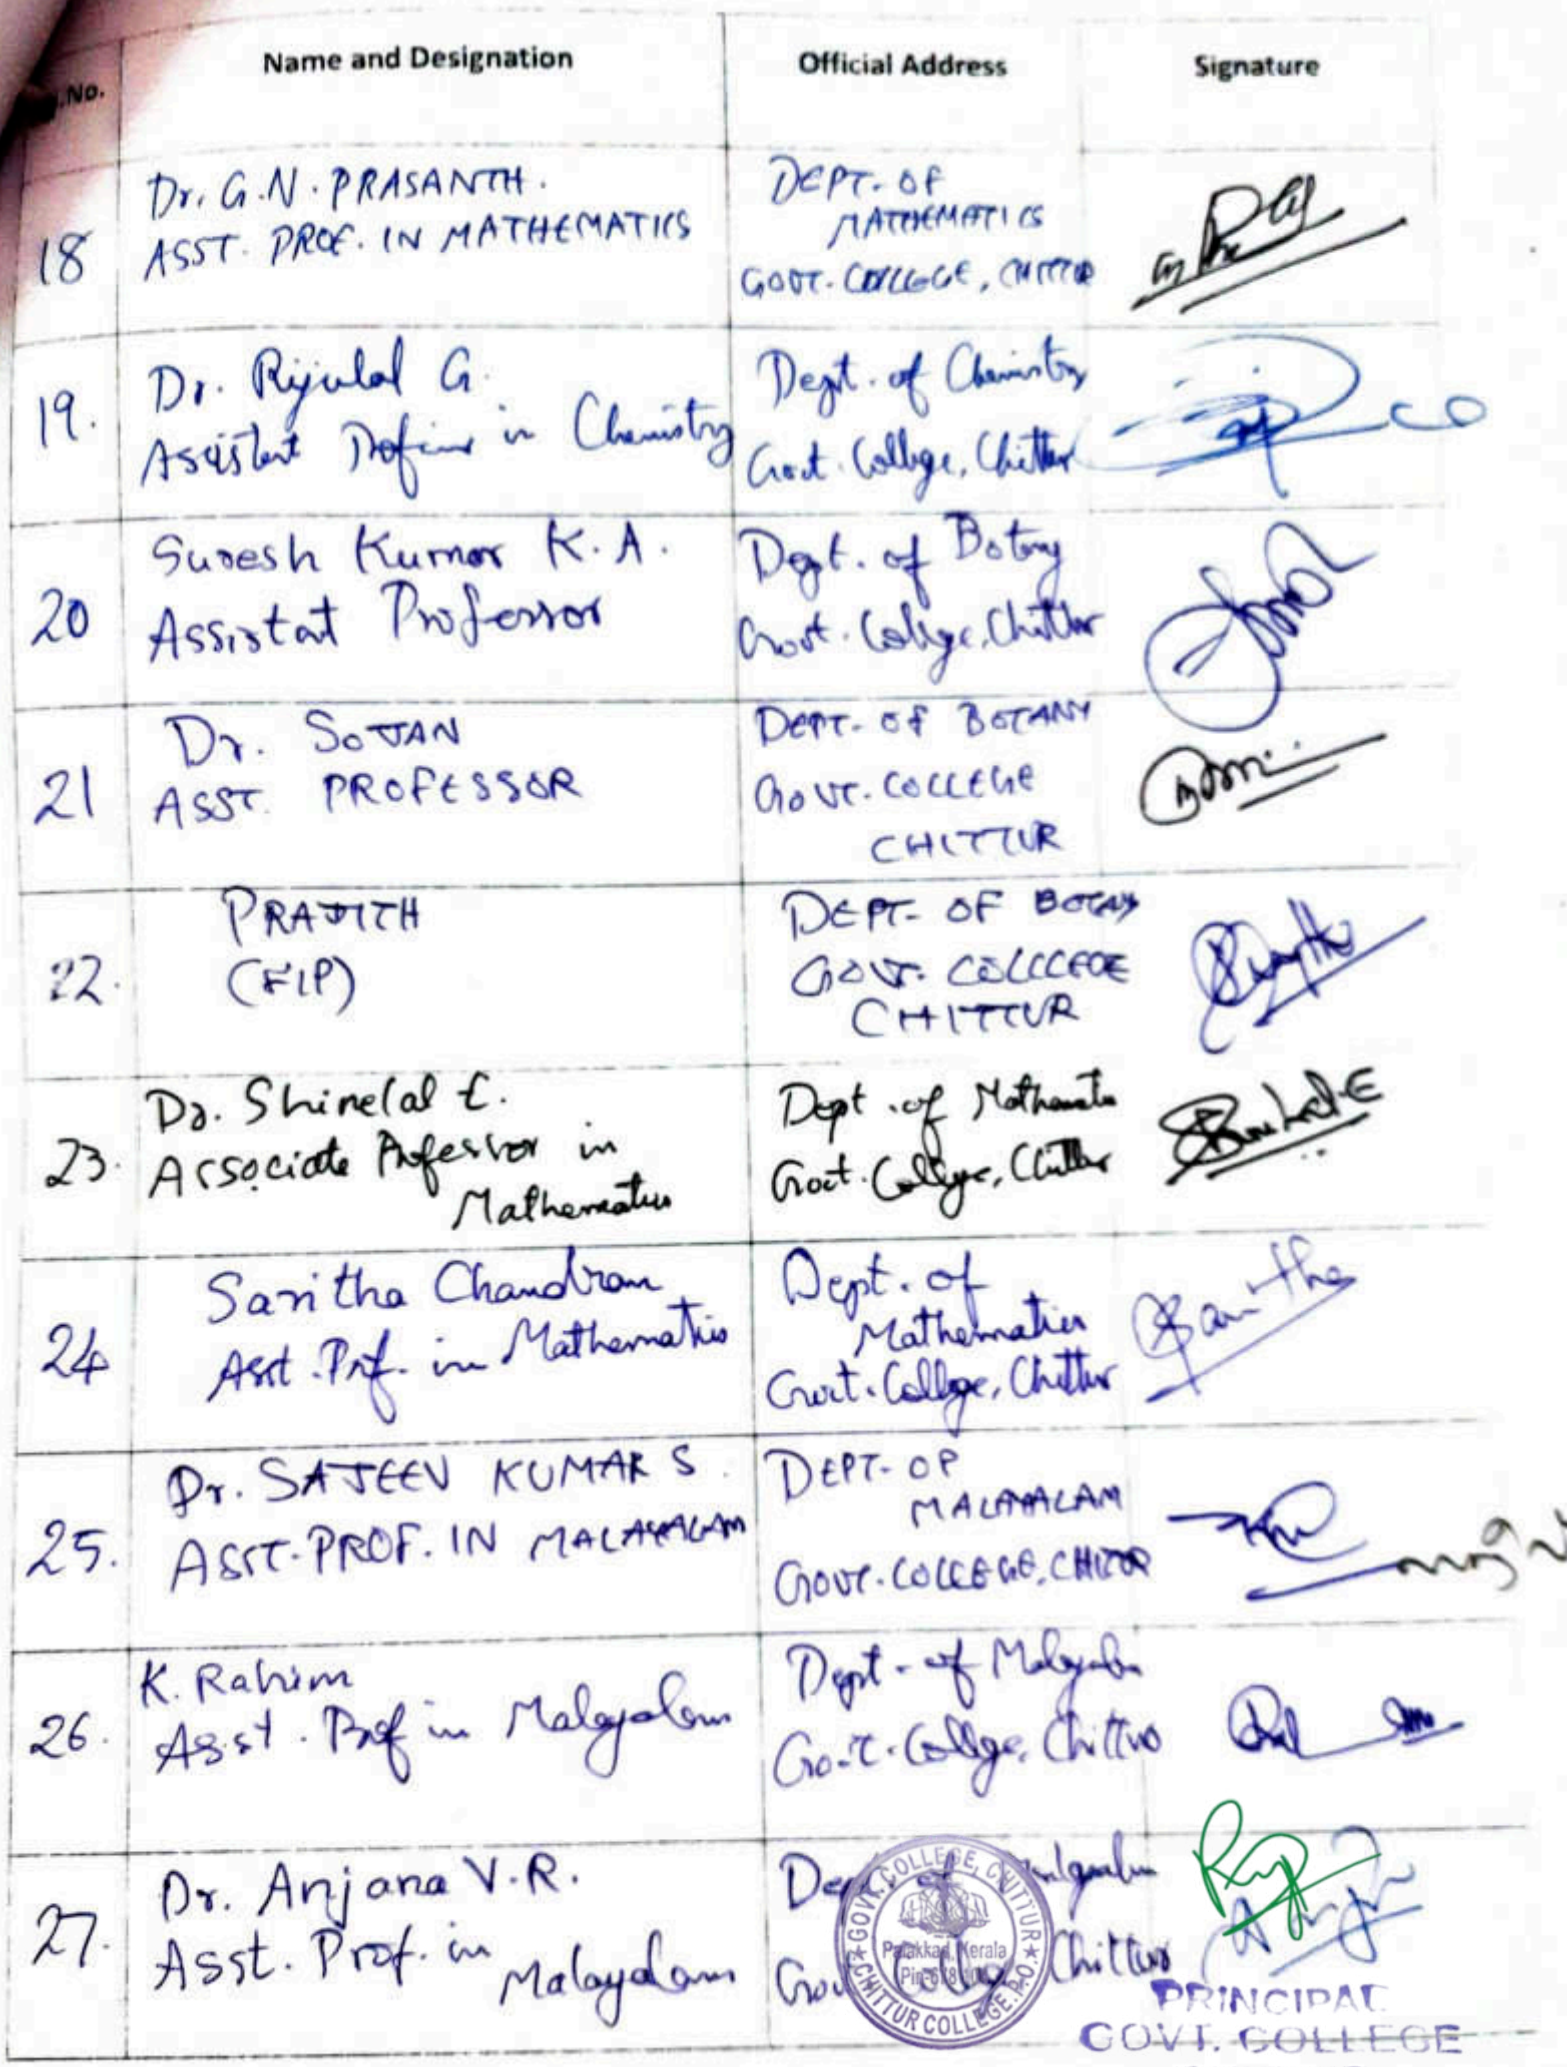 Name and Designation Official Address Signature
.No.
18 Dr. G.N. PRASANTH.
ASST. PROF. IN MATHEMATICS
DEPT. OF
MATHEMATICS
GOVT. COLLEGE, CHITTUR
19. Dr. Rijulal G.
Assistant Professor in Chemistry
Dept. of Chemistry
Govt. College, Chittur
20 Suresh Kumar K.A.
Assistant Professor
Dept. of Botany
Govt. College, Chittur
21 Dr. SOJAN
ASST. PROFESSOR
DEPT. OF BOTANY
GOVT. COLLEGE
CHITTUR
22. PRAJITH
(FIP)
DEPT- OF BOTANY
GOVT. COLLEGE
CHITTUR
23. Dr. Shinelal E.
Associate Professor in
Mathematics
Dept. of Mathematics
Govt. College, Chittur
24 Saritha Chandran
Asst. Prof. in Mathematics
Dept. of
Mathematics
Govt. College, Chittur
Saritha
25. Dr. SAJEEV KUMAR S.
ASST. PROF. IN MALAYALAM
DEPT. OF
MALAYALAM
GOVT. COLLEGE, CHITTUR
26. K. Rahim
Asst. Prof in Malayalam
Dept. of Malayalam
Govt. College, Chittur
27. Dr. Anjana V.R.
Asst. Prof. in
Malayalam
Chittur
GOVT. COLLEGE, CHITTUR
Palakkad, Kerala
CHITTUR COLLEGE.P.O.
PRINCIPAL
GOVT. COLLEGE